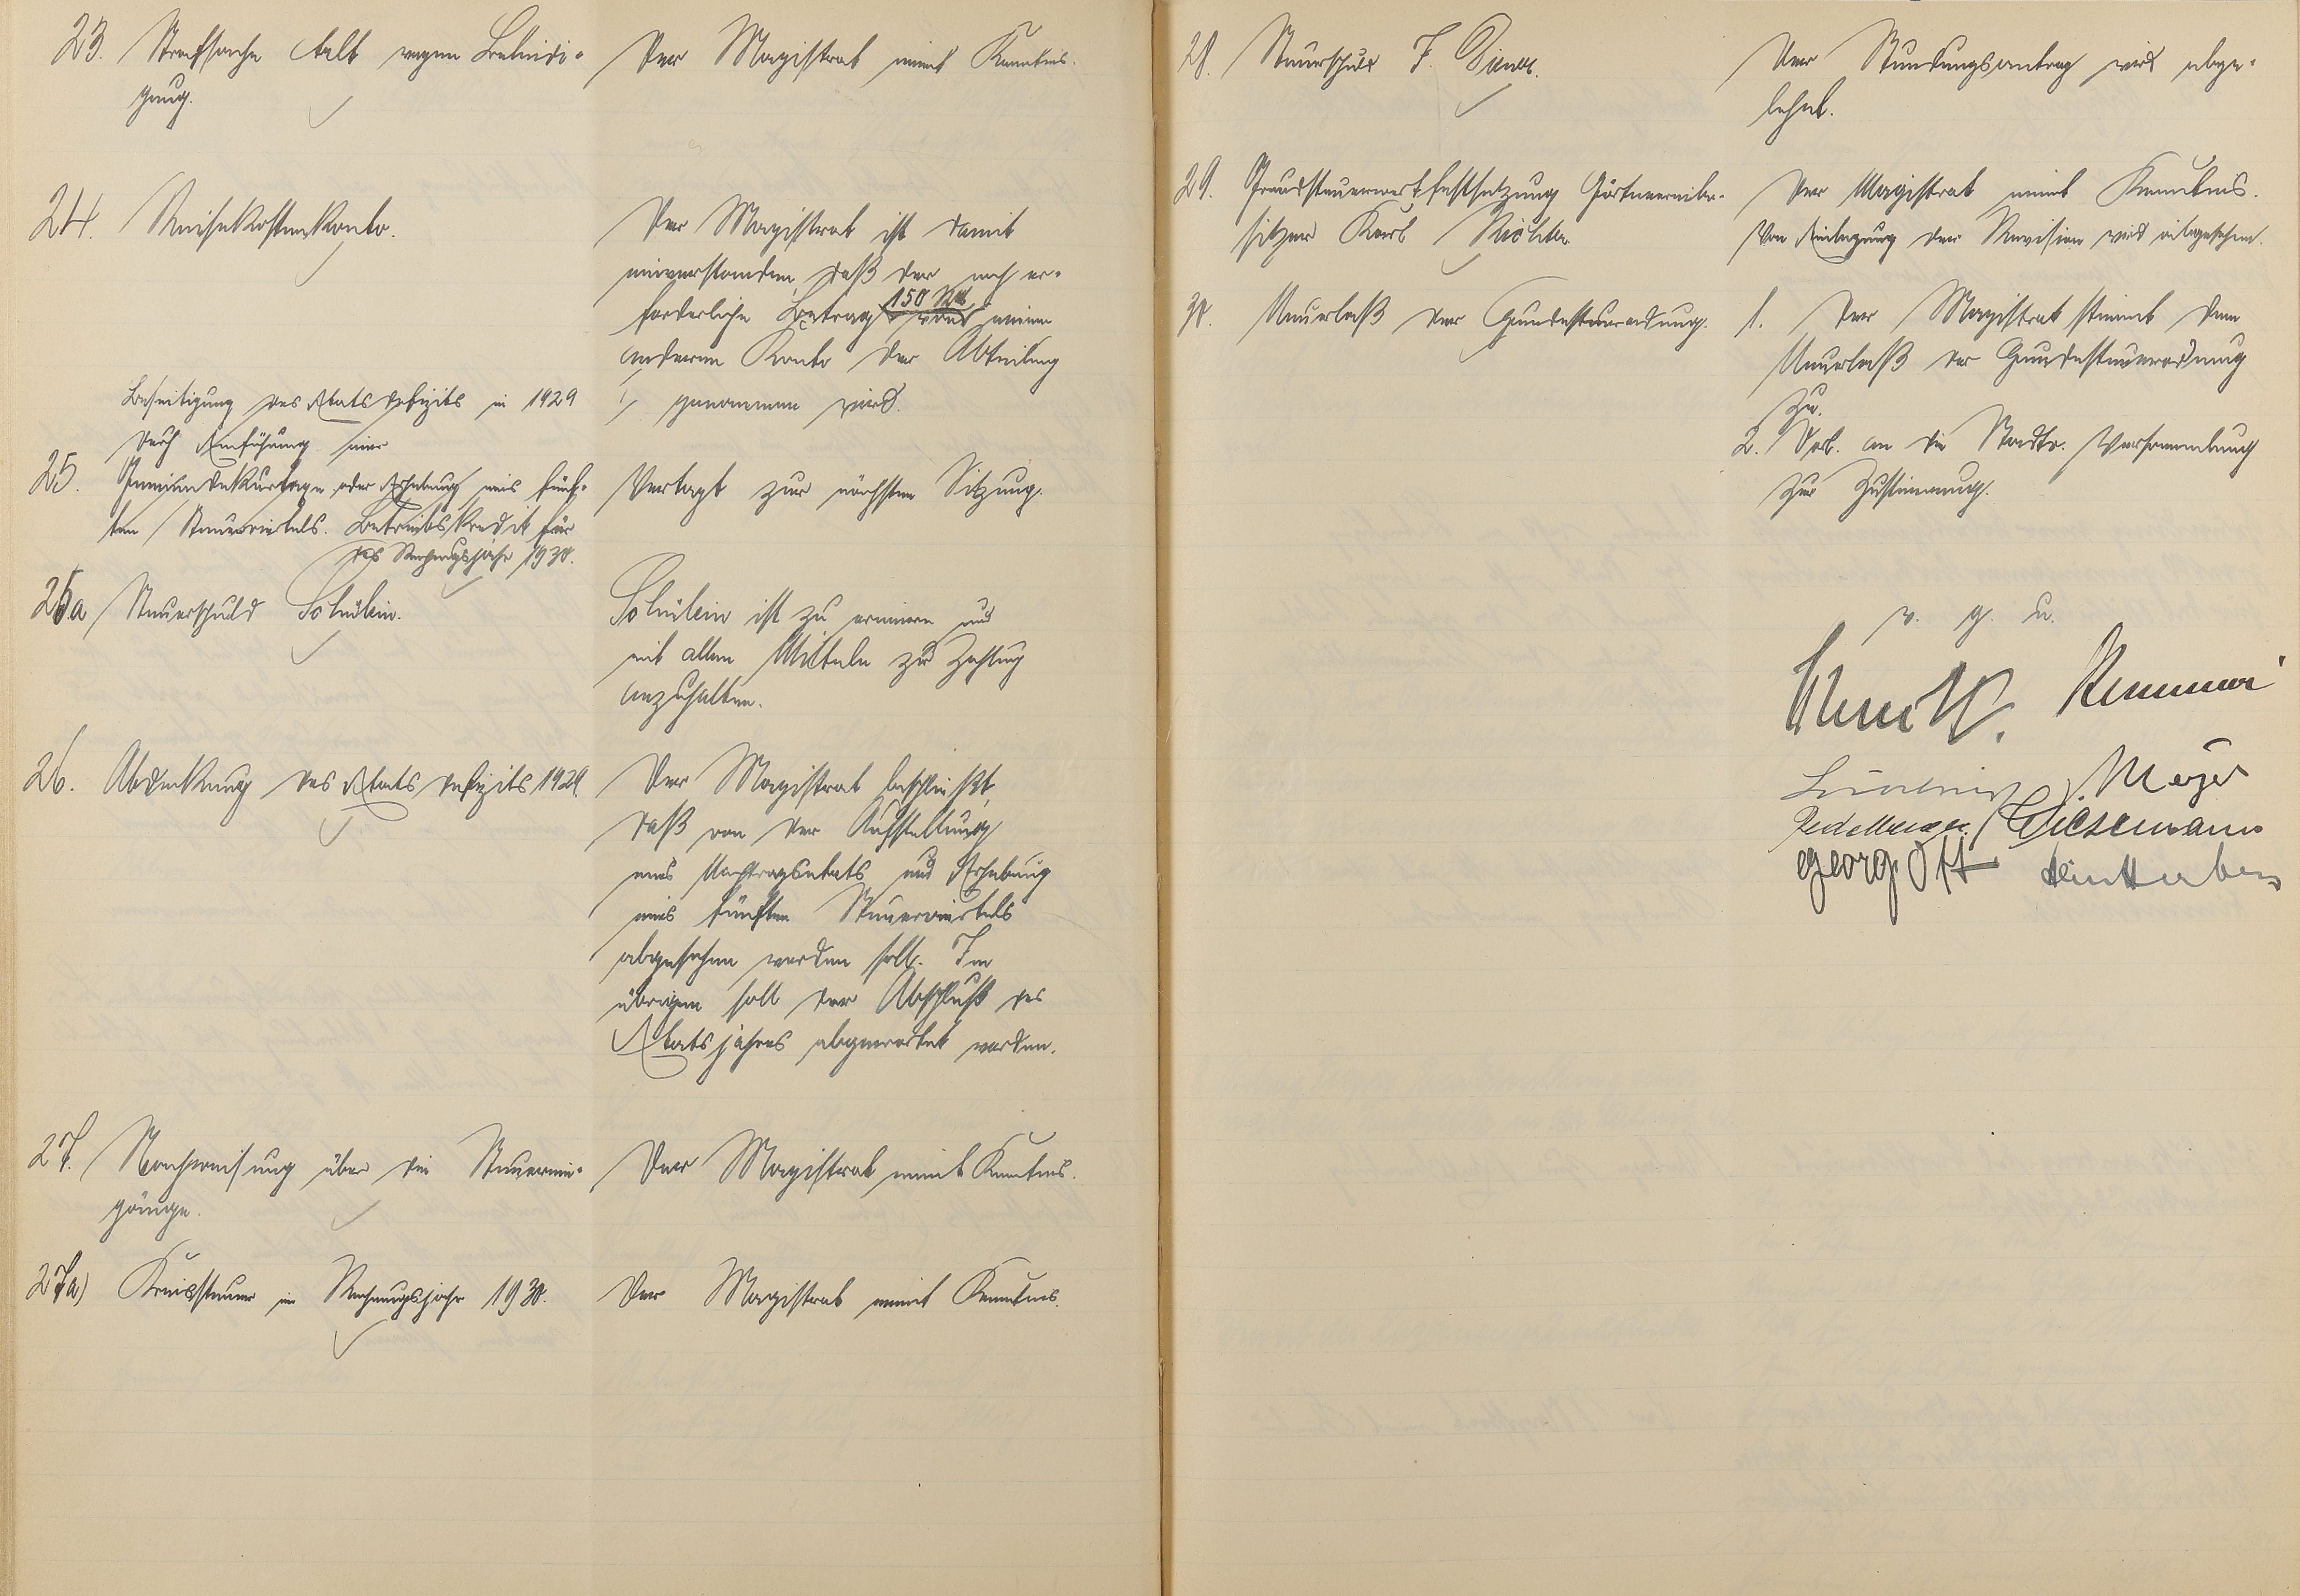 23. Strafsache Alt wegen Beleidi-
gung.
Der Magistrat nimmt Kenntnis.
24. Reisekostenkonto.
Der Magistrat ist damit
einverstanden, daß der noch er-
forderliche Betrag 150 RM von einem
anderen Konto der Abteilung
genommen wird.
Beseitigung des Etatsdefizits in 1929
durch Einführung einer
25. Gemeindekurtaxe oder Erhebung eines fünf-
ten Steuerviertels. Betriebskredit für
das Rechnungsjahr 1930.
Vertagt zur nächsten Sitzung.
25a Steuerschuld Schülein.
Schülein ist zu erinnern und
mit allen Mitteln zur Zahlung
anzuhalten.
26. Abdeckung des Etatsdefizits 1929.
Der Magistrat beschließt,
daß von der Aufstellung
eines Nachtragsetats und Erhebung
eines fünften Steuerviertels
abgesehen werden soll. Im
übrigen soll der Abschluß des
Etatsjahres abgewartet werden.
27. Nachweisung über die Steuerein-
gänge.
Der Magistrat nimmt Kenntnis.
27a) Kreissteuer im Rechnungsjahr 1930.
Der Magistrat nimmt Kenntnis.
28. Steuerschuld F. Diener.
Der Stundungsantrag wird abge-
lehnt.
29. Grundsteuerwertfestsetzung Gärtnereibe-
sitzer Karl Richter.
Der Magistrat nimmt Kenntnis.
Von Einlegung der Revision wird abgesehen.
30. Neuerlaß der Hundesteuerordnung.
1. Der Magistrat stimmt dem
Neuerlaß der Hundesteuerordnung
zu.
2. Vorl. an die Stadtv. Versammlung
zur Zustimmung.
v. g. u.
Meyer
Wiesemann
Georg Ott